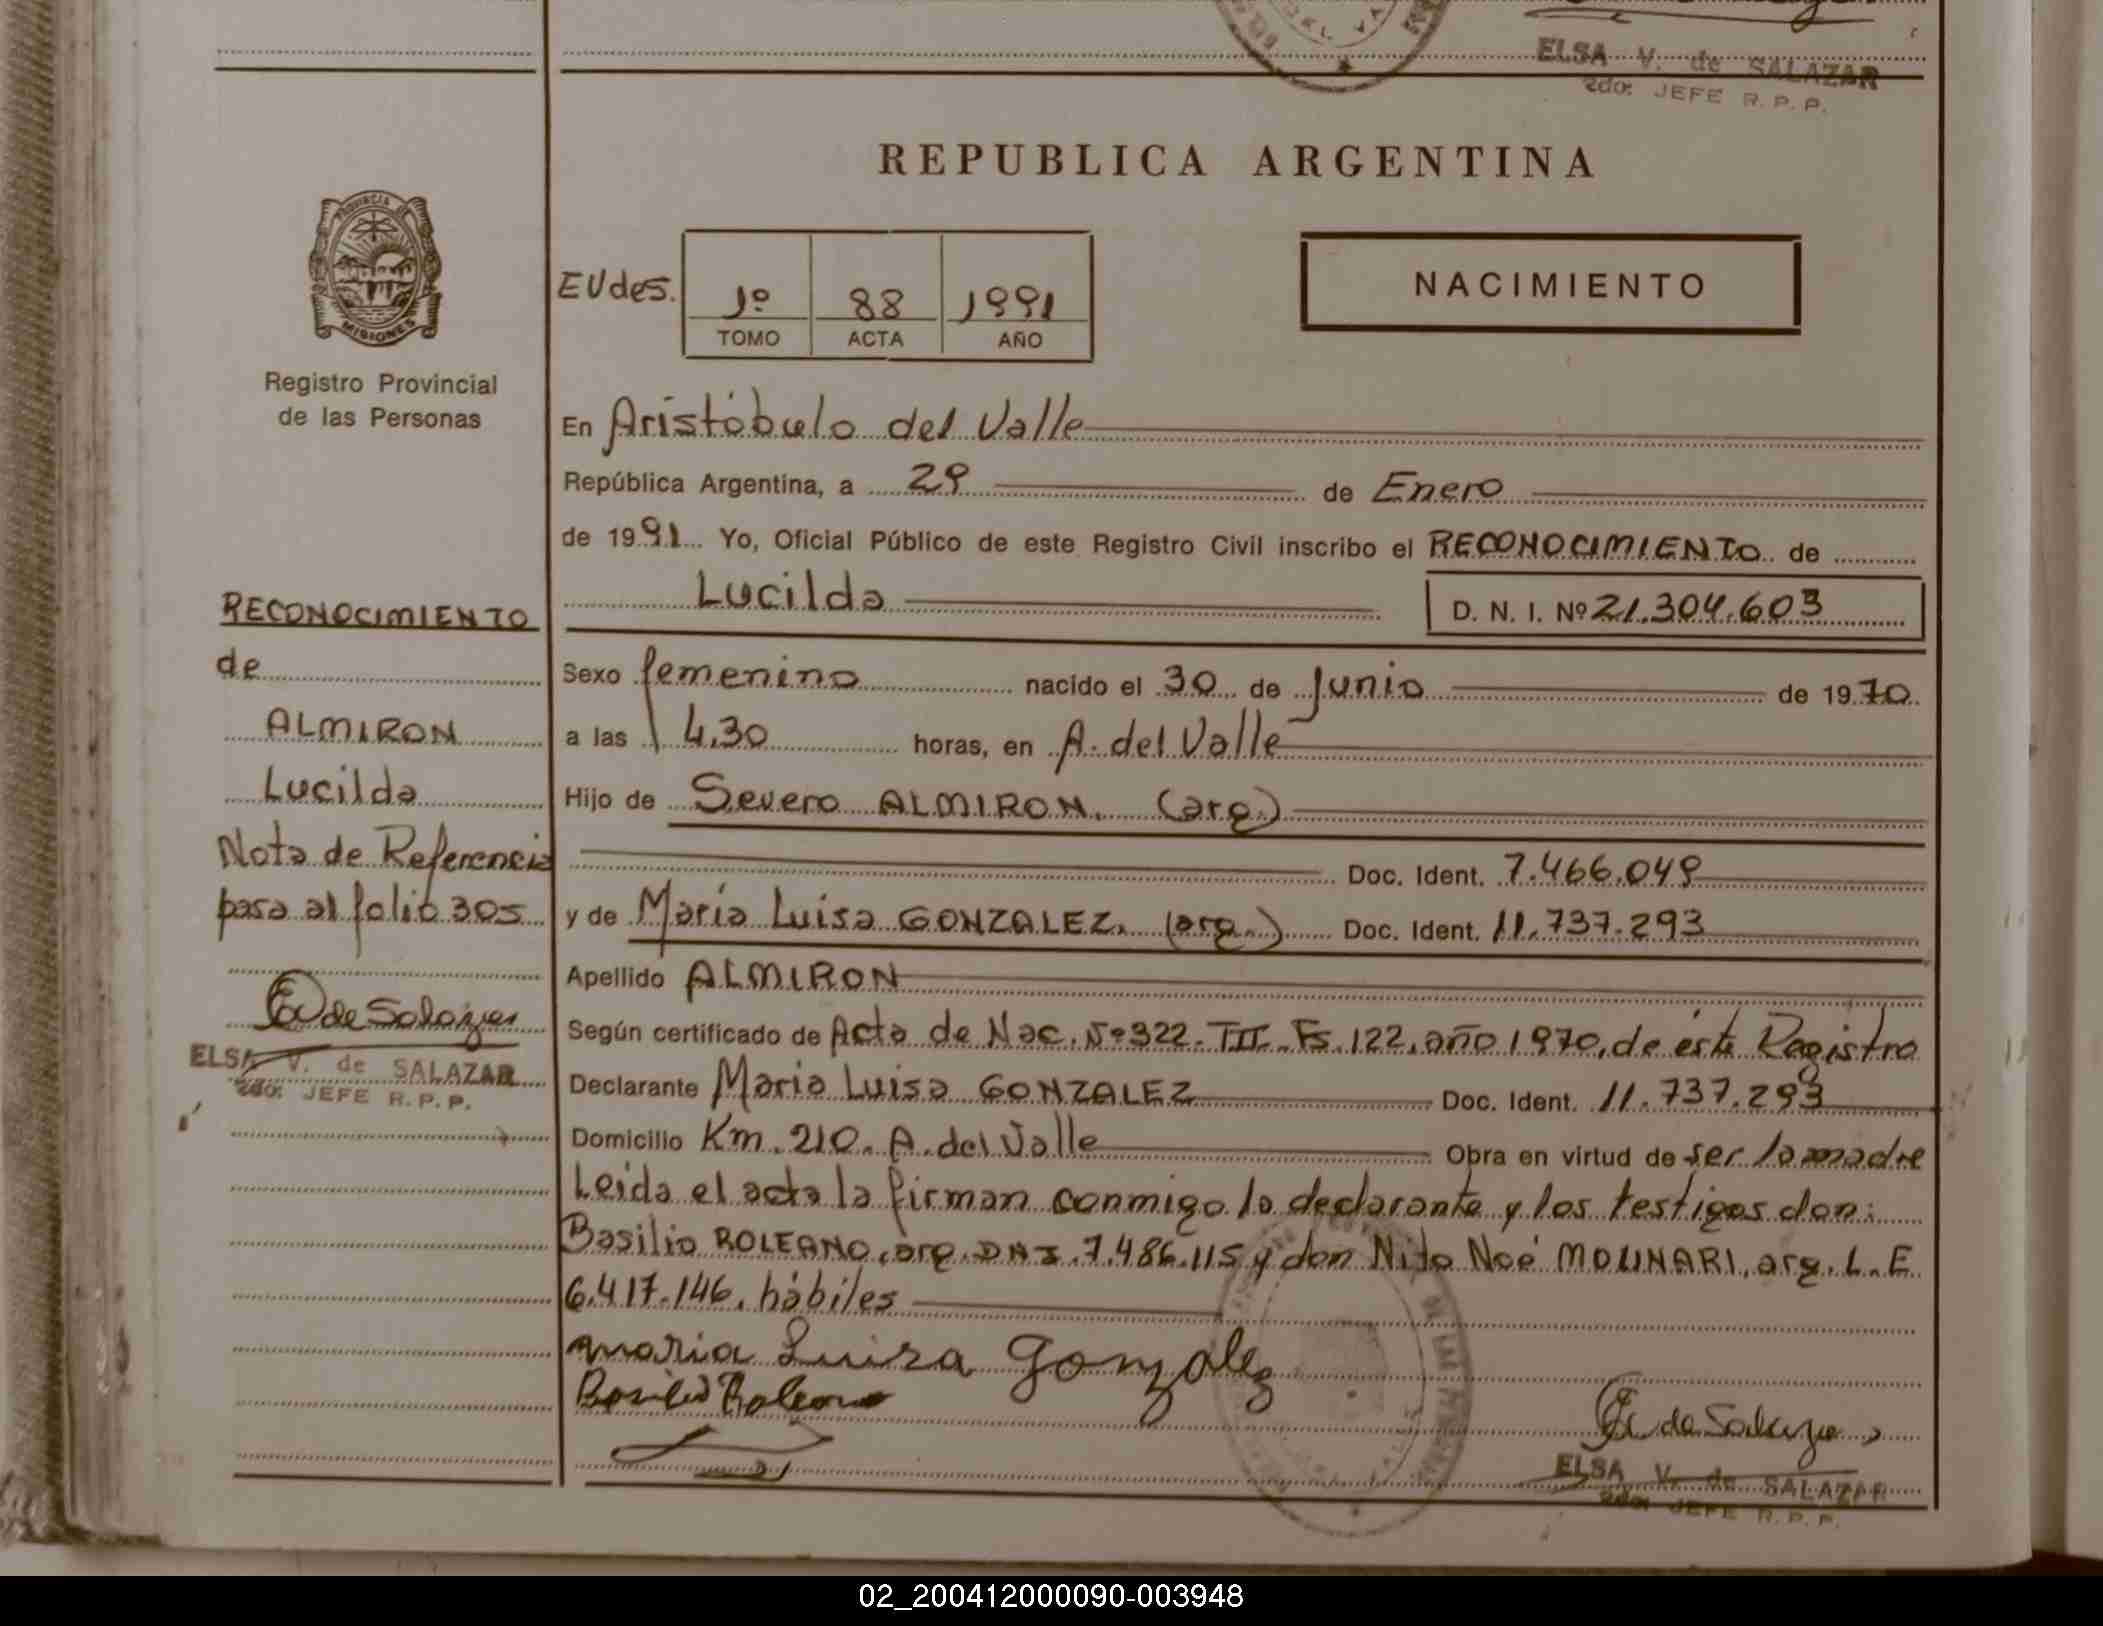 ELSA V. de SALAZAR
2do: JEFE R. P. P.
REPUBLICA ARGENTINA
PROVINCIA DE
MISIONES
Registro Provincial
de las Personas
EVdes.
1º 88 1991
TOMO ACTA AÑO
NACIMIENTO
En Aristóbulo del Valle
República Argentina, a 29 de Enero
de 1991 Yo, Oficial Público de este Registro Civil inscribo el RECONOCIMIENTO de
Lucilda D. N. I. Nº 21.304.603
Sexo femenino nacido el 30 de Junio de 1970
a las 4,30 horas, en A. del Valle
Hijo de Severo ALMIRON. (arg.)
Doc. Ident. 7.466.049
y de María Luisa GONZALEZ. (arg.) Doc. Ident. 11.737.293
Apellido ALMIRON
Según certificado de Acta de Nac. Nº 322. TII. Fs. 122, año 1970, de éste Registro
Declarante Maria Luisa GONZALEZ Doc. Ident. 11.737.293
Domicilio Km. 210. A. del Valle Obra en virtud de ser la madre
Leida el acta la firman conmigo la declarante y los testigos don:
Basilio ROLEANO, arg. DNI. 7.486.115 y don Nito Noé MOLINARI, arg. L.E
6.417.146. hábiles
Maria Luisa Gonzalez
Basilio Roleano
E V de Salazar
ELSA V. de SALAZAR
2do: JEFE R. P. P.
RECONOCIMIENTO
de
ALMIRON
Lucilda
Nota de Referencia
pasa al folio 305
E V de Salazar
ELSA V. de SALAZAR
2do: JEFE R. P. P.
02_200412000090-003948